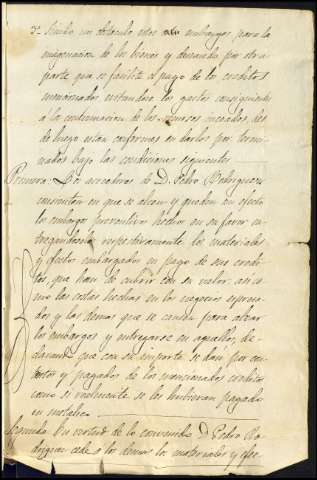 3º Siendo un obstáculo estos embargos para la
enagenacion de los bienes y deseando por otra
parte que se facilite el pago de los creditos
mencionados, evitandose los gastos consiguientes
a la continuacion de los recursos incoados, des-
de luego estan conformes en darlos por termi-
nados bajo las condiciones siguientes
Primera. Los acreedores de D. Pedro Rodriguez
consienten en que se alcen y queden sin efecto
los embargos preventivos hechos en su favor en-
tregandosele respectivamente los materiales
y efectos embargados en pago de sus credi-
tos, que han de cubrir con su valor, asi co-
mo las costas hechas en los negocios espresa-
dos y las demas que se causen para alzar
los embargos y entregarse en aquellos, de-
clarando que con su importe se dan por con-
tentos y pagados de los mencionados creditos
como si realmente se les hubieran pagado
en metalico
Segunda. En virtud de lo convenido D. Pedro Ro-
driguez cede a los demas los materiales y efec-